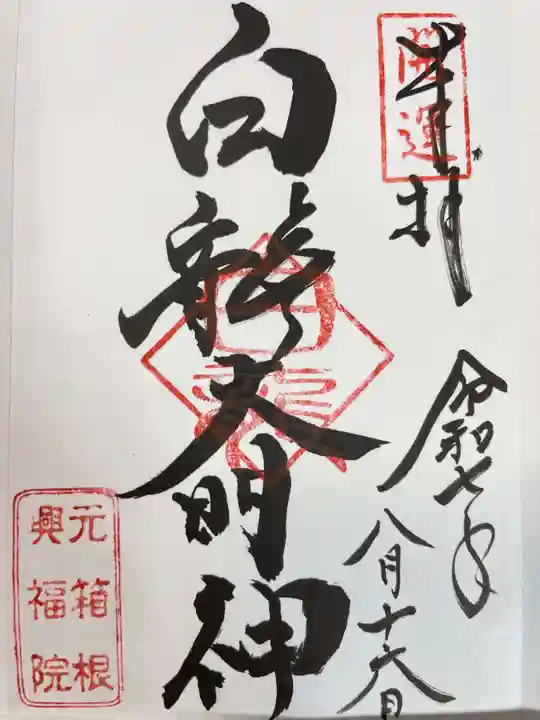 奉拝
開運
令和七年
八月十六日
白龍大明神
白龍
元箱根
興福院